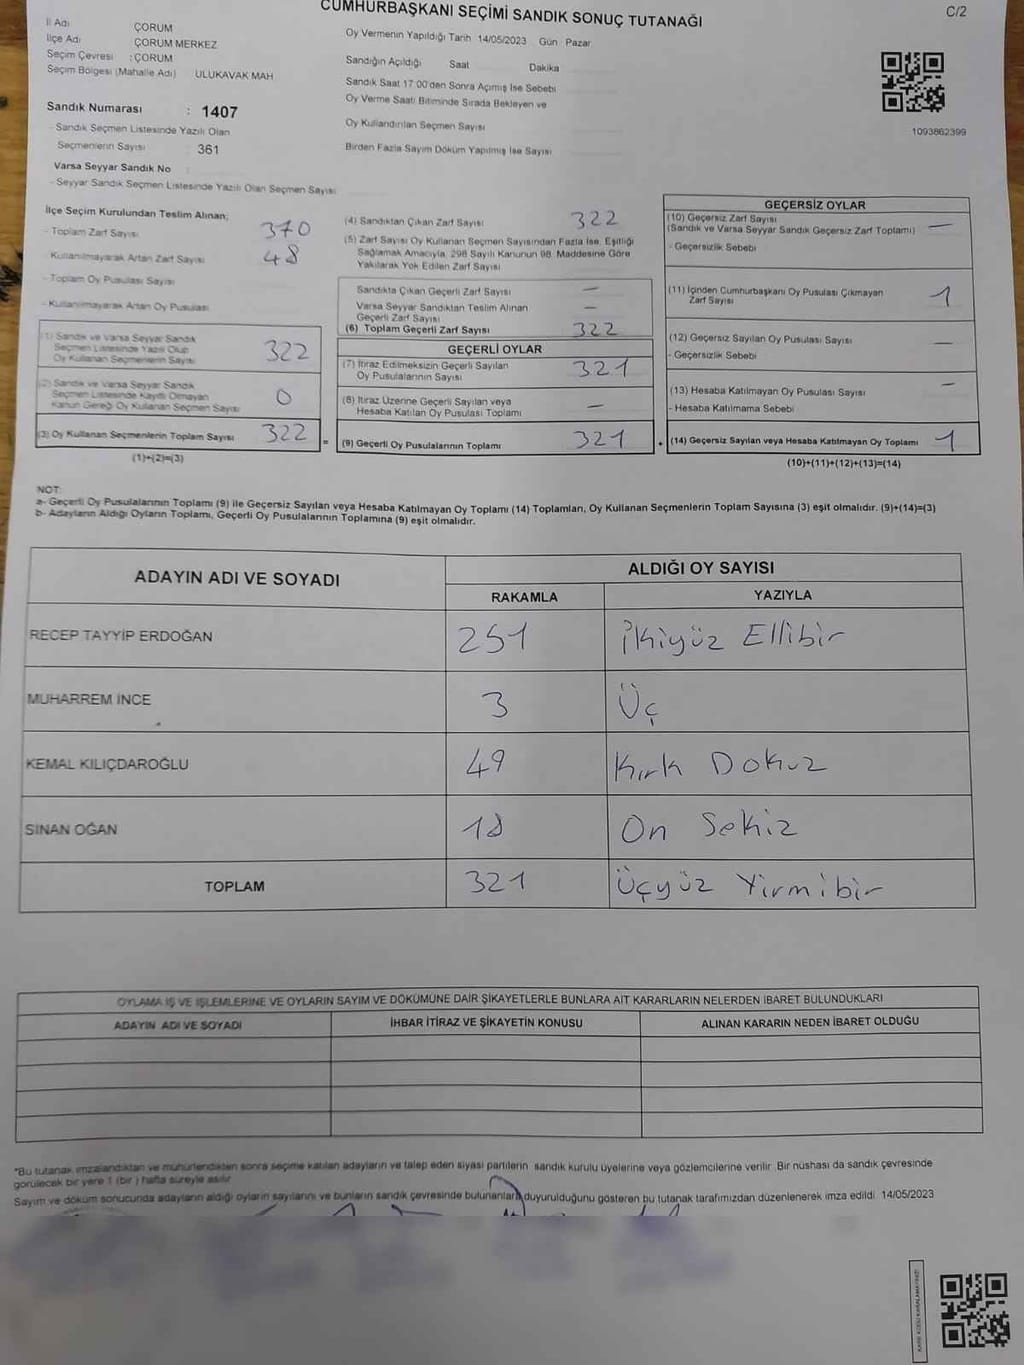 CUMHURBAŞKANI SEÇİMİ SANDIK SONUÇ TUTANAĞI
C/2
İl Adı ÇORUM
İlçe Adı ÇORUM MERKEZ
Seçim Çevresi : ÇORUM
Seçim Bölgesi (Mahalle Adı) ULUKAVAK MAH
Sandık Numarası : 1407
- Sandık Seçmen Listesinde Yazılı Olan
Seçmenlerin Sayısı 361
Varsa Seyyar Sandık No :
- Seyyar Sandık Seçmen Listesinde Yazılı Olan Seçmen Sayısı
Oy Vermenin Yapıldığı Tarih 14/05/2023 Gün Pazar
Sandığın Açıldığı Saat Dakika
Sandık Saat 17:00'den Sonra Açımış İse Sebebi
Oy Verme Saati Bitiminde Sırada Bekleyen ve
Oy Kullandırılan Seçmen Sayısı
Birden Fazla Sayım Döküm Yapılmış İse Sayısı
1093862399
İlçe Seçim Kurulundan Teslim Alınan;
- Toplam Zarf Sayısı 370
- Kullanılmayarak Artan Zarf Sayısı 48
- Toplam Oy Pusulası Sayısı
- Kullanılmayarak Artan Oy Pusulası
(1) Sandık ve Varsa Seyyar Sandık
Seçmen Listesinde Yazılı Olup
Oy Kullanan Seçmenlerin Sayısı 322
(2) Sandık ve Varsa Seyyar Sandık
Seçmen Listesinde Kayıtlı Olmayan
Kanun Gereği Oy Kullanan Seçmen Sayısı 0
(3) Oy Kullanan Seçmenlerin Toplam Sayısı 322 =
(1)+(2)=(3)
(4) Sandıktan Çıkan Zarf Sayısı 322
(5) Zarf Sayısı Oy Kullanan Seçmen Sayısından Fazla İse, Eşitliği
Sağlamak Amacıyla, 298 Sayılı Kanunun 98. Maddesine Göre
Yakılarak Yok Edilen Zarf Sayısı
Sandıkta Çıkan Geçerli Zarf Sayısı —
Varsa Seyyar Sandıktan Teslim Alınan —
Geçerli Zarf Sayısı
(6) Toplam Geçerli Zarf Sayısı 322
GEÇERLİ OYLAR
(7) İtiraz Edilmeksizin Geçerli Sayılan
Oy Pusulalarının Sayısı 321
(8) İtiraz Üzerine Geçerli Sayılan veya
Hesaba Katılan Oy Pusulası Toplamı —
(9) Geçerli Oy Pusulalarının Toplamı 321 +
GEÇERSİZ OYLAR
(10) Geçersiz Zarf Sayısı
(Sandık ve Varsa Seyyar Sandık Geçersiz Zarf Toplamı) —
- Geçersizlik Sebebi
(11) İçinden Cumhurbaşkanı Oy Pusulası Çıkmayan
Zarf Sayısı 1
(12) Geçersiz Sayılan Oy Pusulası Sayısı —
- Geçersizlik Sebebi
(13) Hesaba Katılmayan Oy Pusulası Sayısı —
- Hesaba Katılmama Sebebi
(14) Geçersiz Sayılan veya Hesaba Katılmayan Oy Toplamı 1
(10)+(11)+(12)+(13)=(14)
NOT:
a- Geçerli Oy Pusulalarının Toplamı (9) ile Geçersiz Sayılan veya Hesaba Katılmayan Oy Toplamı (14) Toplamları, Oy Kullanan Seçmenlerin Toplam Sayısına (3) eşit olmalıdır. (9)+(14)=(3)
b- Adayların Aldığı Oyların Toplamı, Geçerli Oy Pusulalarının Toplamına (9) eşit olmalıdır.
ADAYIN ADI VE SOYADI ALDIĞI OY SAYISI
RAKAMLA YAZIYLA
RECEP TAYYİP ERDOĞAN 251 İkiyüz Ellibir
MUHARREM İNCE 3 Üç
KEMAL KILIÇDAROĞLU 49 Kırk Dokuz
SİNAN OĞAN 18 On Sekiz
TOPLAM 321 Üçyüz Yirmibir
OYLAMA İŞ VE İŞLEMLERİNE VE OYLARIN SAYIM VE DÖKÜMÜNE DAİR ŞİKAYETLERLE BUNLARA AİT KARARLARIN NELERDEN İBARET BULUNDUKLARI
ADAYIN ADI VE SOYADI İHBAR İTİRAZ VE ŞİKAYETİN KONUSU ALINAN KARARIN NEDEN İBARET OLDUĞU
*Bu tutanak imzalandıktan ve mühürlendikten sonra seçime katılan adayların ve talep eden siyasi partilerin sandık kurulu üyelerine veya gözlemcilerine verilir. Bir nüshası da sandık çevresinde
görülecek bir yere 1 (bir) hafta süreyle asılır.
Sayım ve döküm sonucunda adayların aldığı oyların sayılarını ve bunların sandık çevresinde bulunanlara duyurulduğunu gösteren bu tutanak tarafımızdan düzenlenerek imza edildi. 14/05/2023